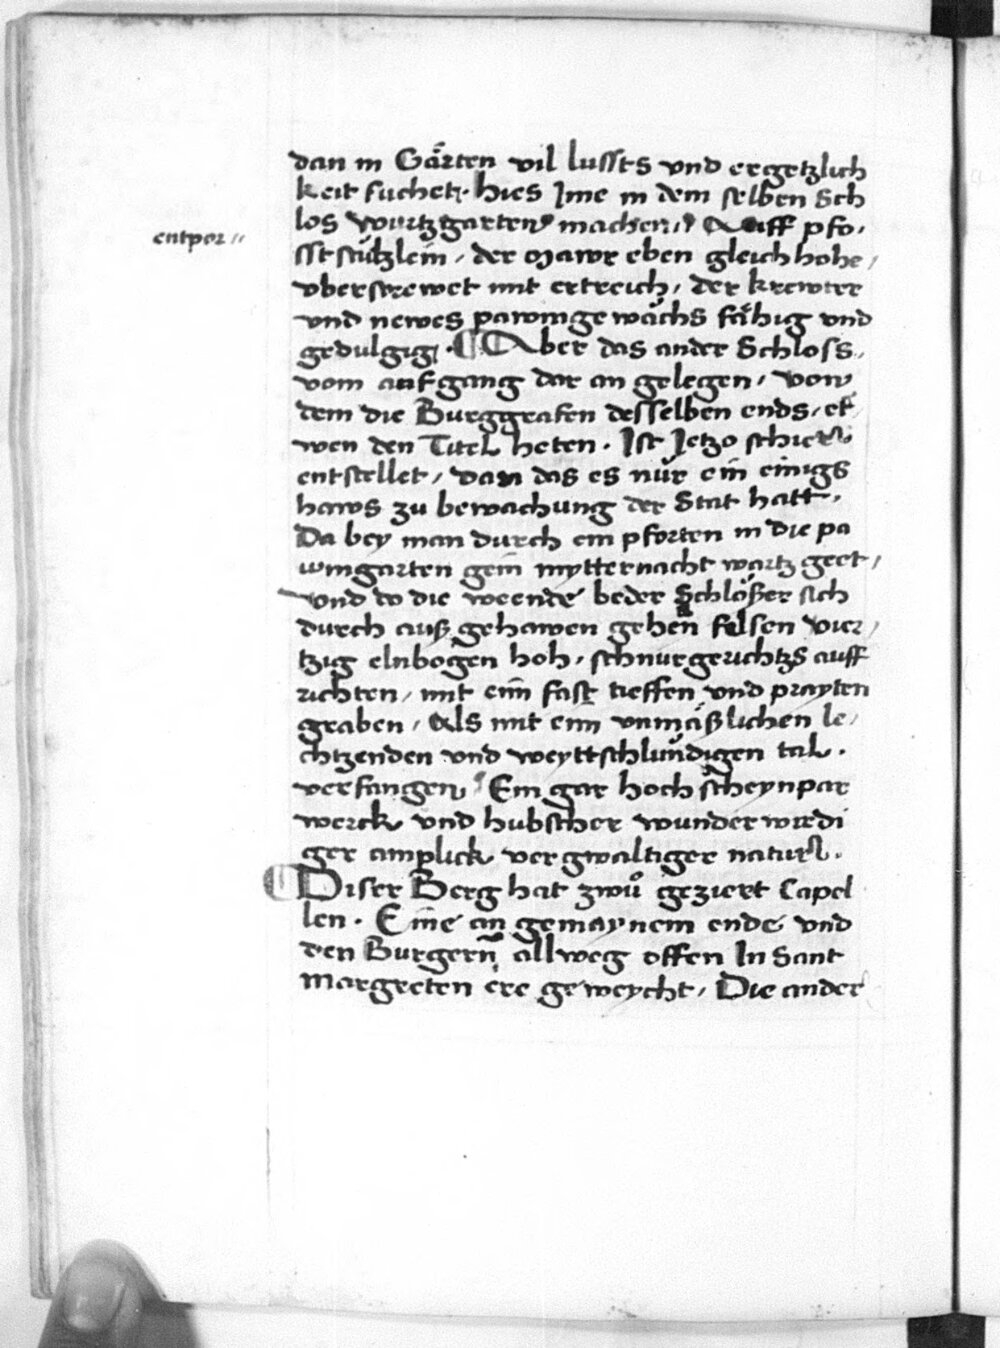 dan in Gärten vil lussts vnd ergetzlich
keit suchet. hies Jme in dem selben Sch
los wurtzgarten machen, Auff pfo,
entpor //
sst stützlein, der Mawr eben gleich hohe,
vberstrewet mit ertreich, der krewter
vnd newes pawmgewächs fähig vnd
gedulgig. Aber das ander Schloss,
vom aufgang dar an gelegen, von
dem die Burggrafen desselben ends, et
wen den Titel heten. Ist Jetzo schier
entstellet, dan das es nür ein einigs
haws zu bewachung der Stat hatt.
Da bey man durch ein pforten in die pa
wmgarten gein mytternacht wartz geet,
vnd do die weende beder Schlößer sich
durch auß gehawen gehen felsen vier,
tzig elnbogen hoh, schnurgerichtzs auff
richten, mit eim fast tieffen vnd prayten
graben, Als mit eim vnmäßlichen le,
chtzenden vnd weyttschlündigen tal.
verfangen, Ein gar hoch scheynpar
werck vnd hubscher wunderwirdi
ger amplick vergwaltiger natur.
Diser Berg hat zwů geziert Capel
len. Eine an gemaynem ende vnd
den Burgern allweg offen In Sant
Margreten ere geweycht, Die ander